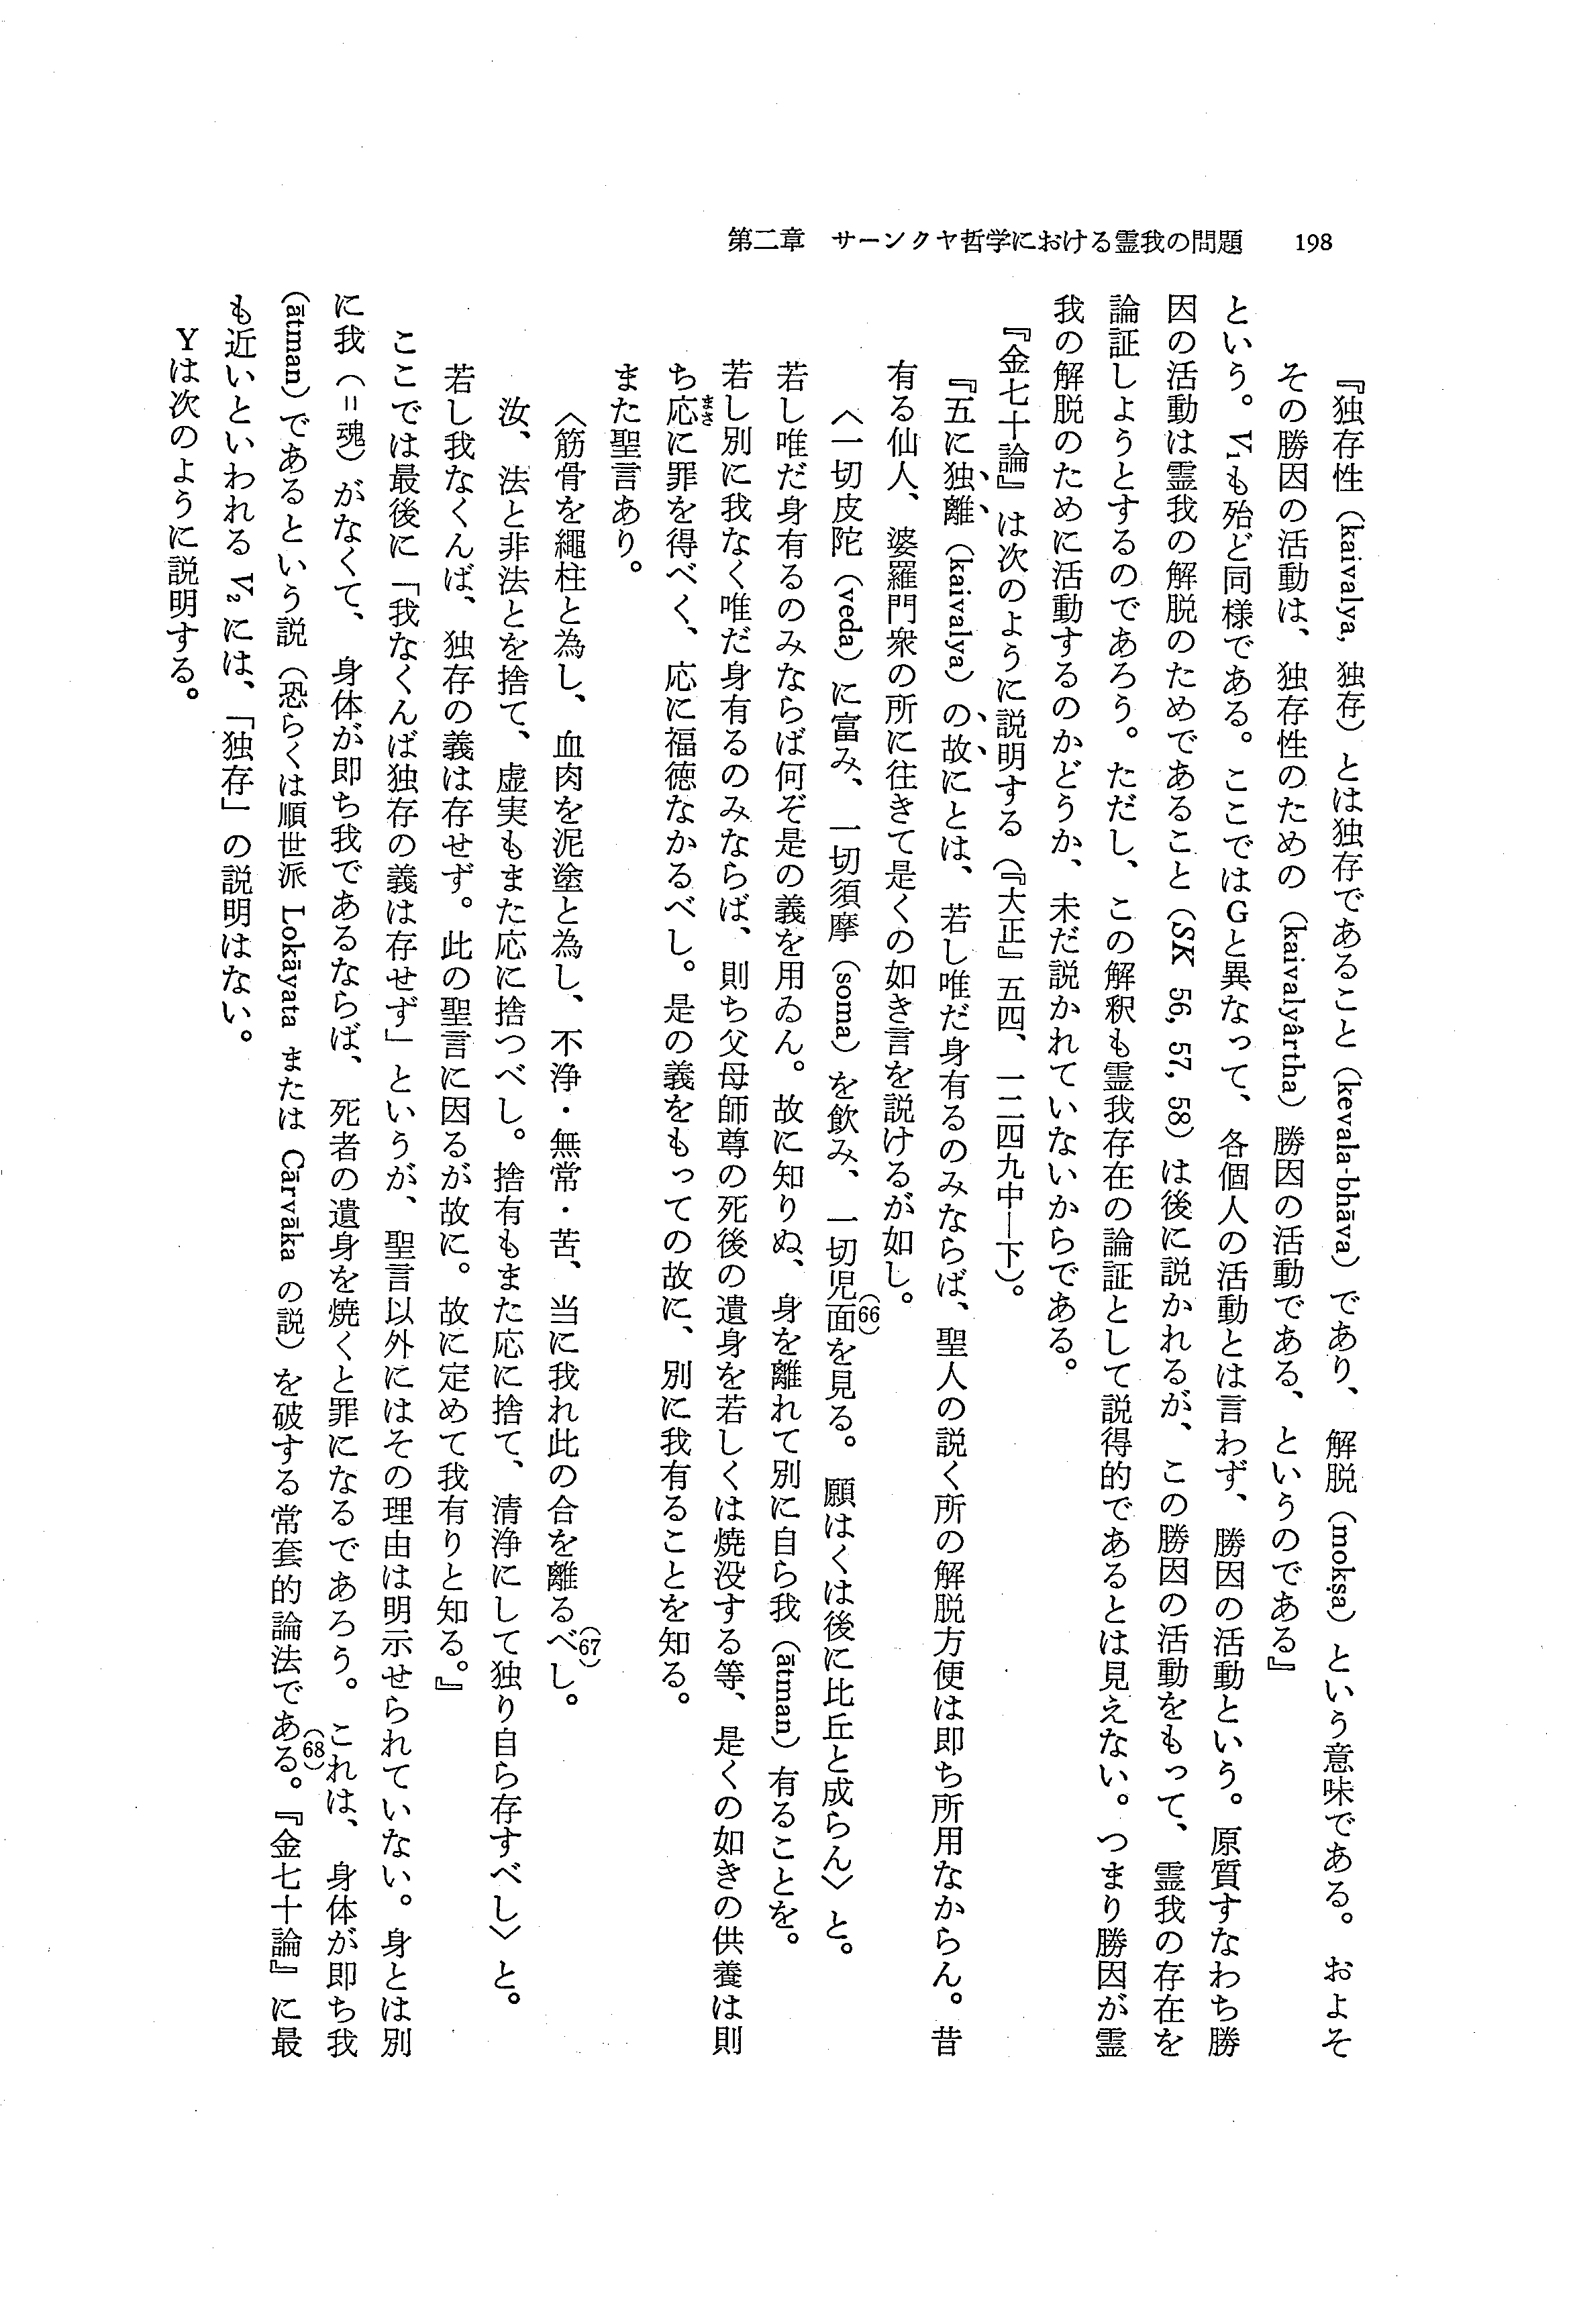 第二章　サーンクヤ哲学における霊我の問題　198
『独存性（kaivalya, 独存）とは独存であること（kevala-bhāva）であり、解脱（mokṣa）という意味である。およそ
その勝因の活動は、独存性のための（kaivalyârtha）勝因の活動である、というのである』
という。V₁も殆ど同様である。ここではGと異なって、各個人の活動とは言わず、勝因の活動という。原質すなわち勝
因の活動は霊我の解脱のためであること（SK 56, 57, 58）は後に説かれるが、この勝因の活動をもって、霊我の存在を
論証しようとするのであろう。ただし、この解釈も霊我存在の論証として説得的であるとは見えない。つまり勝因が霊
我の解脱のために活動するのかどうか、未だ説かれていないからである。
『金七十論』は次のように説明する（『大正』五四、一二四九中―下）。
『五に独離（kaivalya）の故にとは、若し唯だ身有るのみならば、聖人の説く所の解脱方便は即ち所用なからん。昔
有る仙人、婆羅門衆の所に往きて是くの如き言を説けるが如し。
〈一切皮陀（veda）に富み、一切須摩（soma）を飲み、一切児面を見る。願はくは後に比丘と成らん〉と。(66)
若し唯だ身有るのみならば何ぞ是の義を用ゐん。故に知りぬ、身を離れて別に自ら我（ātman）有ることを。
若し別に我なく唯だ身有るのみならば、則ち父母師尊の死後の遺身を若しくは焼没する等、是くの如きの供養は則
ち応まさに罪を得べく、応に福徳なかるべし。是の義をもっての故に、別に我有ることを知る。
また聖言あり。
〈筋骨を繩柱と為し、血肉を泥塗と為し、不浄・無常・苦、当に我れ此の合を離るべし。(67)
汝、法と非法とを捨て、虚実もまた応に捨つべし。捨有もまた応に捨て、清浄にして独り自ら存すべし〉と。
若し我なくんば、独存の義は存せず。此の聖言に因るが故に。故に定めて我有りと知る。』
ここでは最後に「我なくんば独存の義は存せず」というが、聖言以外にはその理由は明示せられていない。身とは別
に我（＝魂）がなくて、身体が即ち我であるならば、死者の遺身を焼くと罪になるであろう。これは、身体が即ち我
（ātman）であるという説（恐らくは順世派 Lokāyata または Cārvāka の説）を破する常套的論法である。(68)『金七十論』に最
も近いといわれる V₂には、「独存」の説明はない。
Yは次のように説明する。